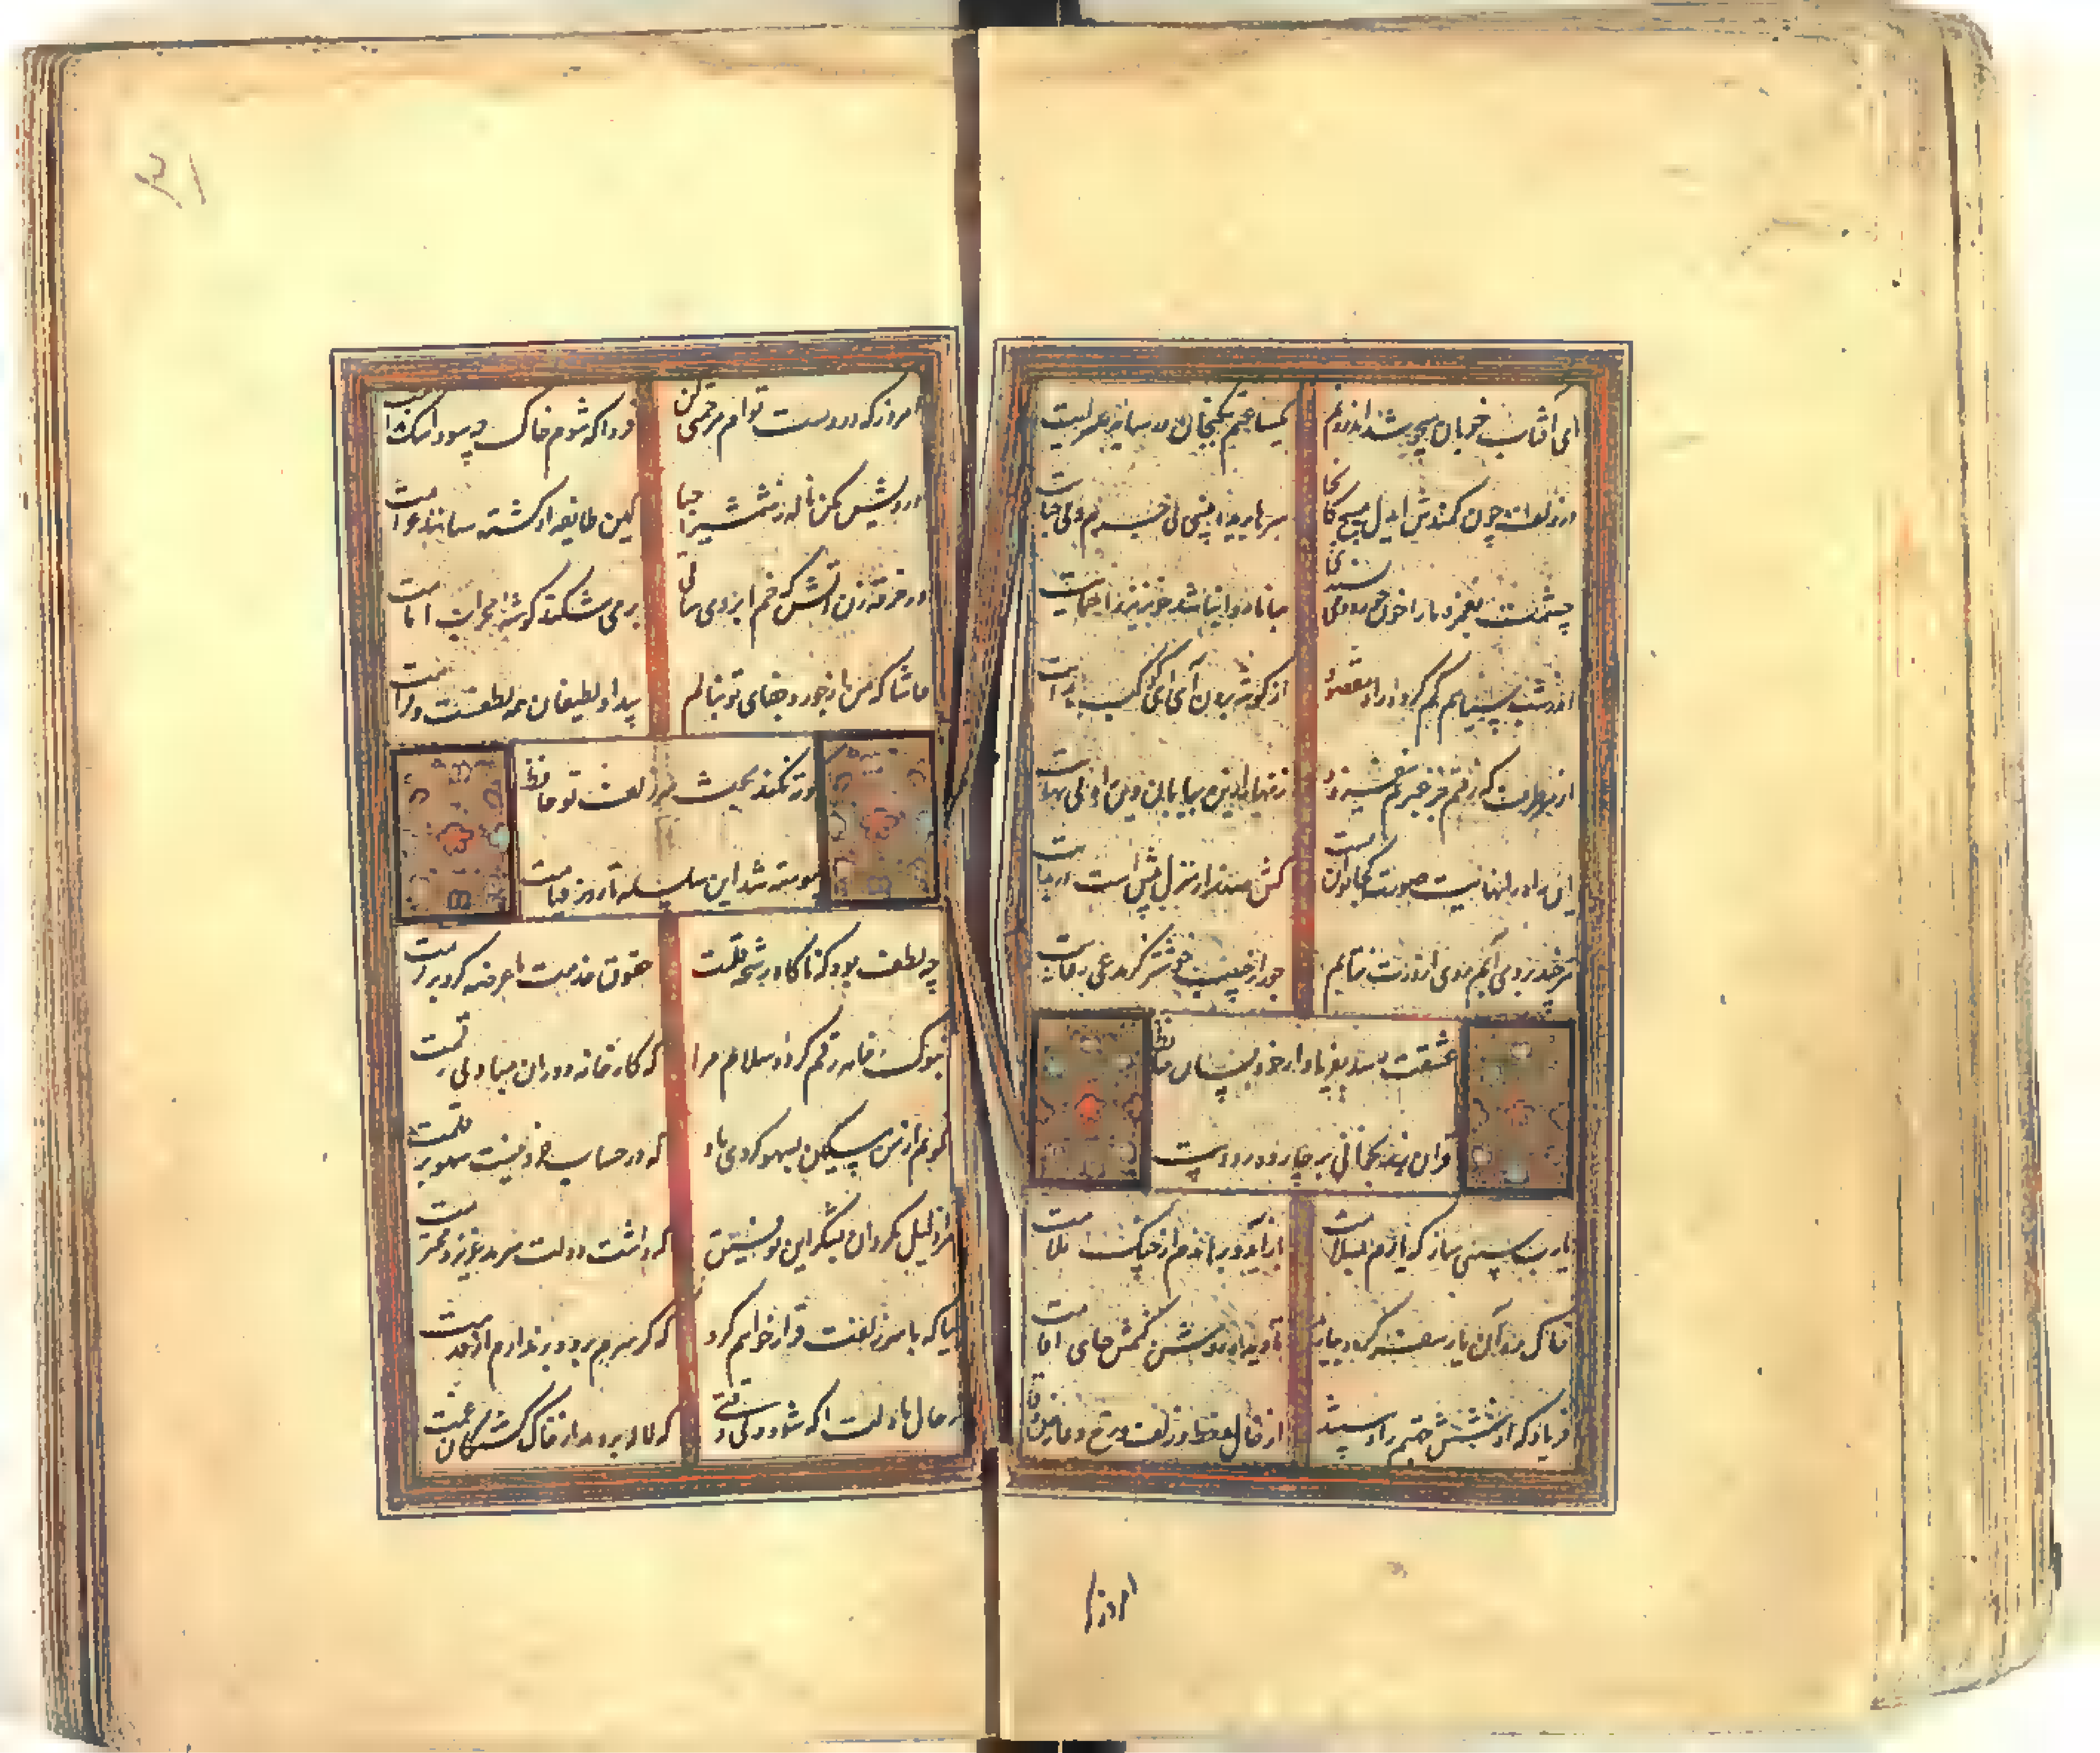 ای آفتاب خوبان میجوشد اندرونم یکساعتم بکنجان در سایه عنایت
در زلف چون کمندش ایدل مپیچ کانجا سرها بریده بینی بی جرم و بی جنایت
چشمت بغمزه ما را خون خورد و می‌پسندی جانا روا نباشد خونریز را حمایت
اندر شب سیاهم گم گردد راه مقصود از گوشه برون آی ای کوکب هدایت
از هر طرف که رفتم جز حیرتم نیفزود زنهار ازین بیابان وین راه بی نهایت
این راه را نهایت صورت کجا توان بست کش صد هزار منزل پیش است در بدایت
هر چند بردی آبم روی از درت نتابم جور از حبیب خوشتر کز مدعی رعایت
عشقت رسد بفریاد ار خود بسان حافظ
قرآن ز بر بخوانی بر چارده روایت
یارب سببی ساز که یارم بسلامت باز آید و برهاندم از چنگ ملامت
خاک ره آن یار سفر کرده بیارید تا دیده روشن کنمش جای اقامت
فریاد که از شش جهتم راه ببستند از خال و خط و زلف و رخ و عارض و قامت
امروز
امروز که در دست توام مرحمتی کن فردا که شوم خاک چه سود اشک ندامت
درویش مکن ناله ز شمشیر احبا کین طایفه از کشته ستانند غرامت
در خرقه زن آتش که خم ابروی ساقی بر می‌شکند گوشه محراب امامت
حاشا که من از جور و جفای تو بنالم بیداد لطیفان همه لطفست و کرامت
کوته نکند بحث سر زلف تو حافظ
پیوسته شد این سلسله تا روز قیامت
چه لطف بود که ناگاه رشحه قلمت حقوق خدمت ما عرضه کرد بر کرمت
بنوک خامه رقم کرده سلام مرا که کارخانه دوران مباد بی رقمت
نگویم از من بیدل بسهو کردی یاد که در حساب خرد نیست سهو بر قلمت
مرا ذلیل مگردان بشکر این نعمت که داشت دولت سرمد عزیز و محترمت
بیا که با سر زلفت قرار خواهم کرد که گر سرم برود برندارم از قدمت
ز حال ما دلت آگه شود ولی وقتی که لاله بردمد از خاک کشتگان غمت